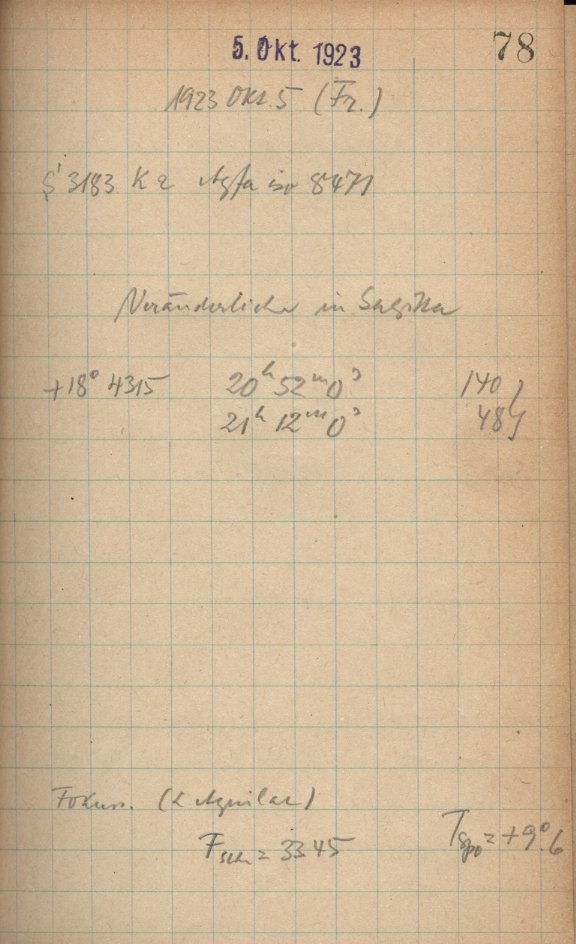 5. Okt. 1923
78
1923 Okt. 5 (Fr.)
S 3183 K 2 Agfa iso 8471
Veränderliche in Sagitta
+18° 4315 20h 52m 0s 140
21h 12m 0s 48
Fokuss. (α Aquilae)
= 3345
= +9°.6